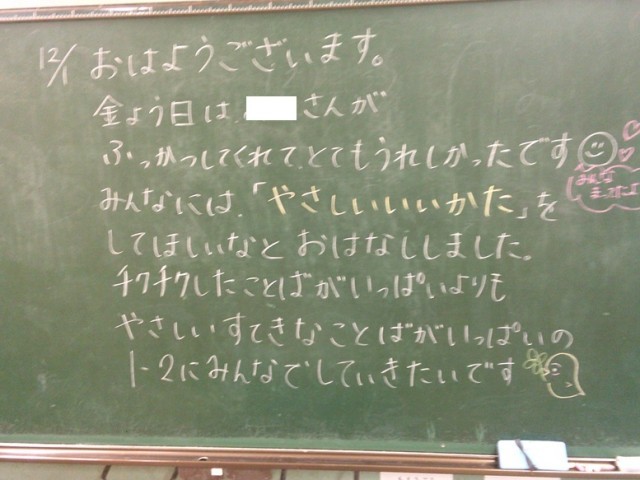 12/1 おはようございます。
金よう日は、さんが
ふっかつしてくれて、とてもうれしかったです
みんな
みんなには、「やさしいいいかた」を
してほしいなと おはなししました。
チクチクしたことばがいっぱいよりも
やさしいすてきなことばがいっぱいの
1-2にみんなでしていきたいです